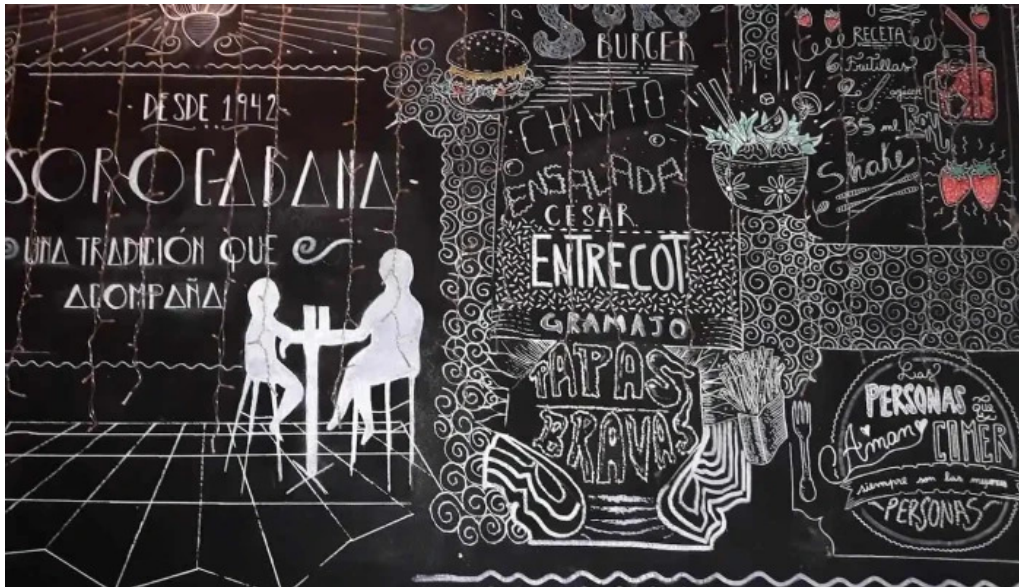 DESDE 1942
SOROCABANA
UNA TRADICIÓN QUE
ACOMPAÑA
S'ORO
BURGER
CHIVITO
ENSALADA
CESAR
ENTRECOT
GRAMAJO
PAPAS
BRAVAS
RECETA
Frutillas
35 ml
Shake
Las
PERSONAS que
Aman COMER
siempre son las mejores
PERSONAS